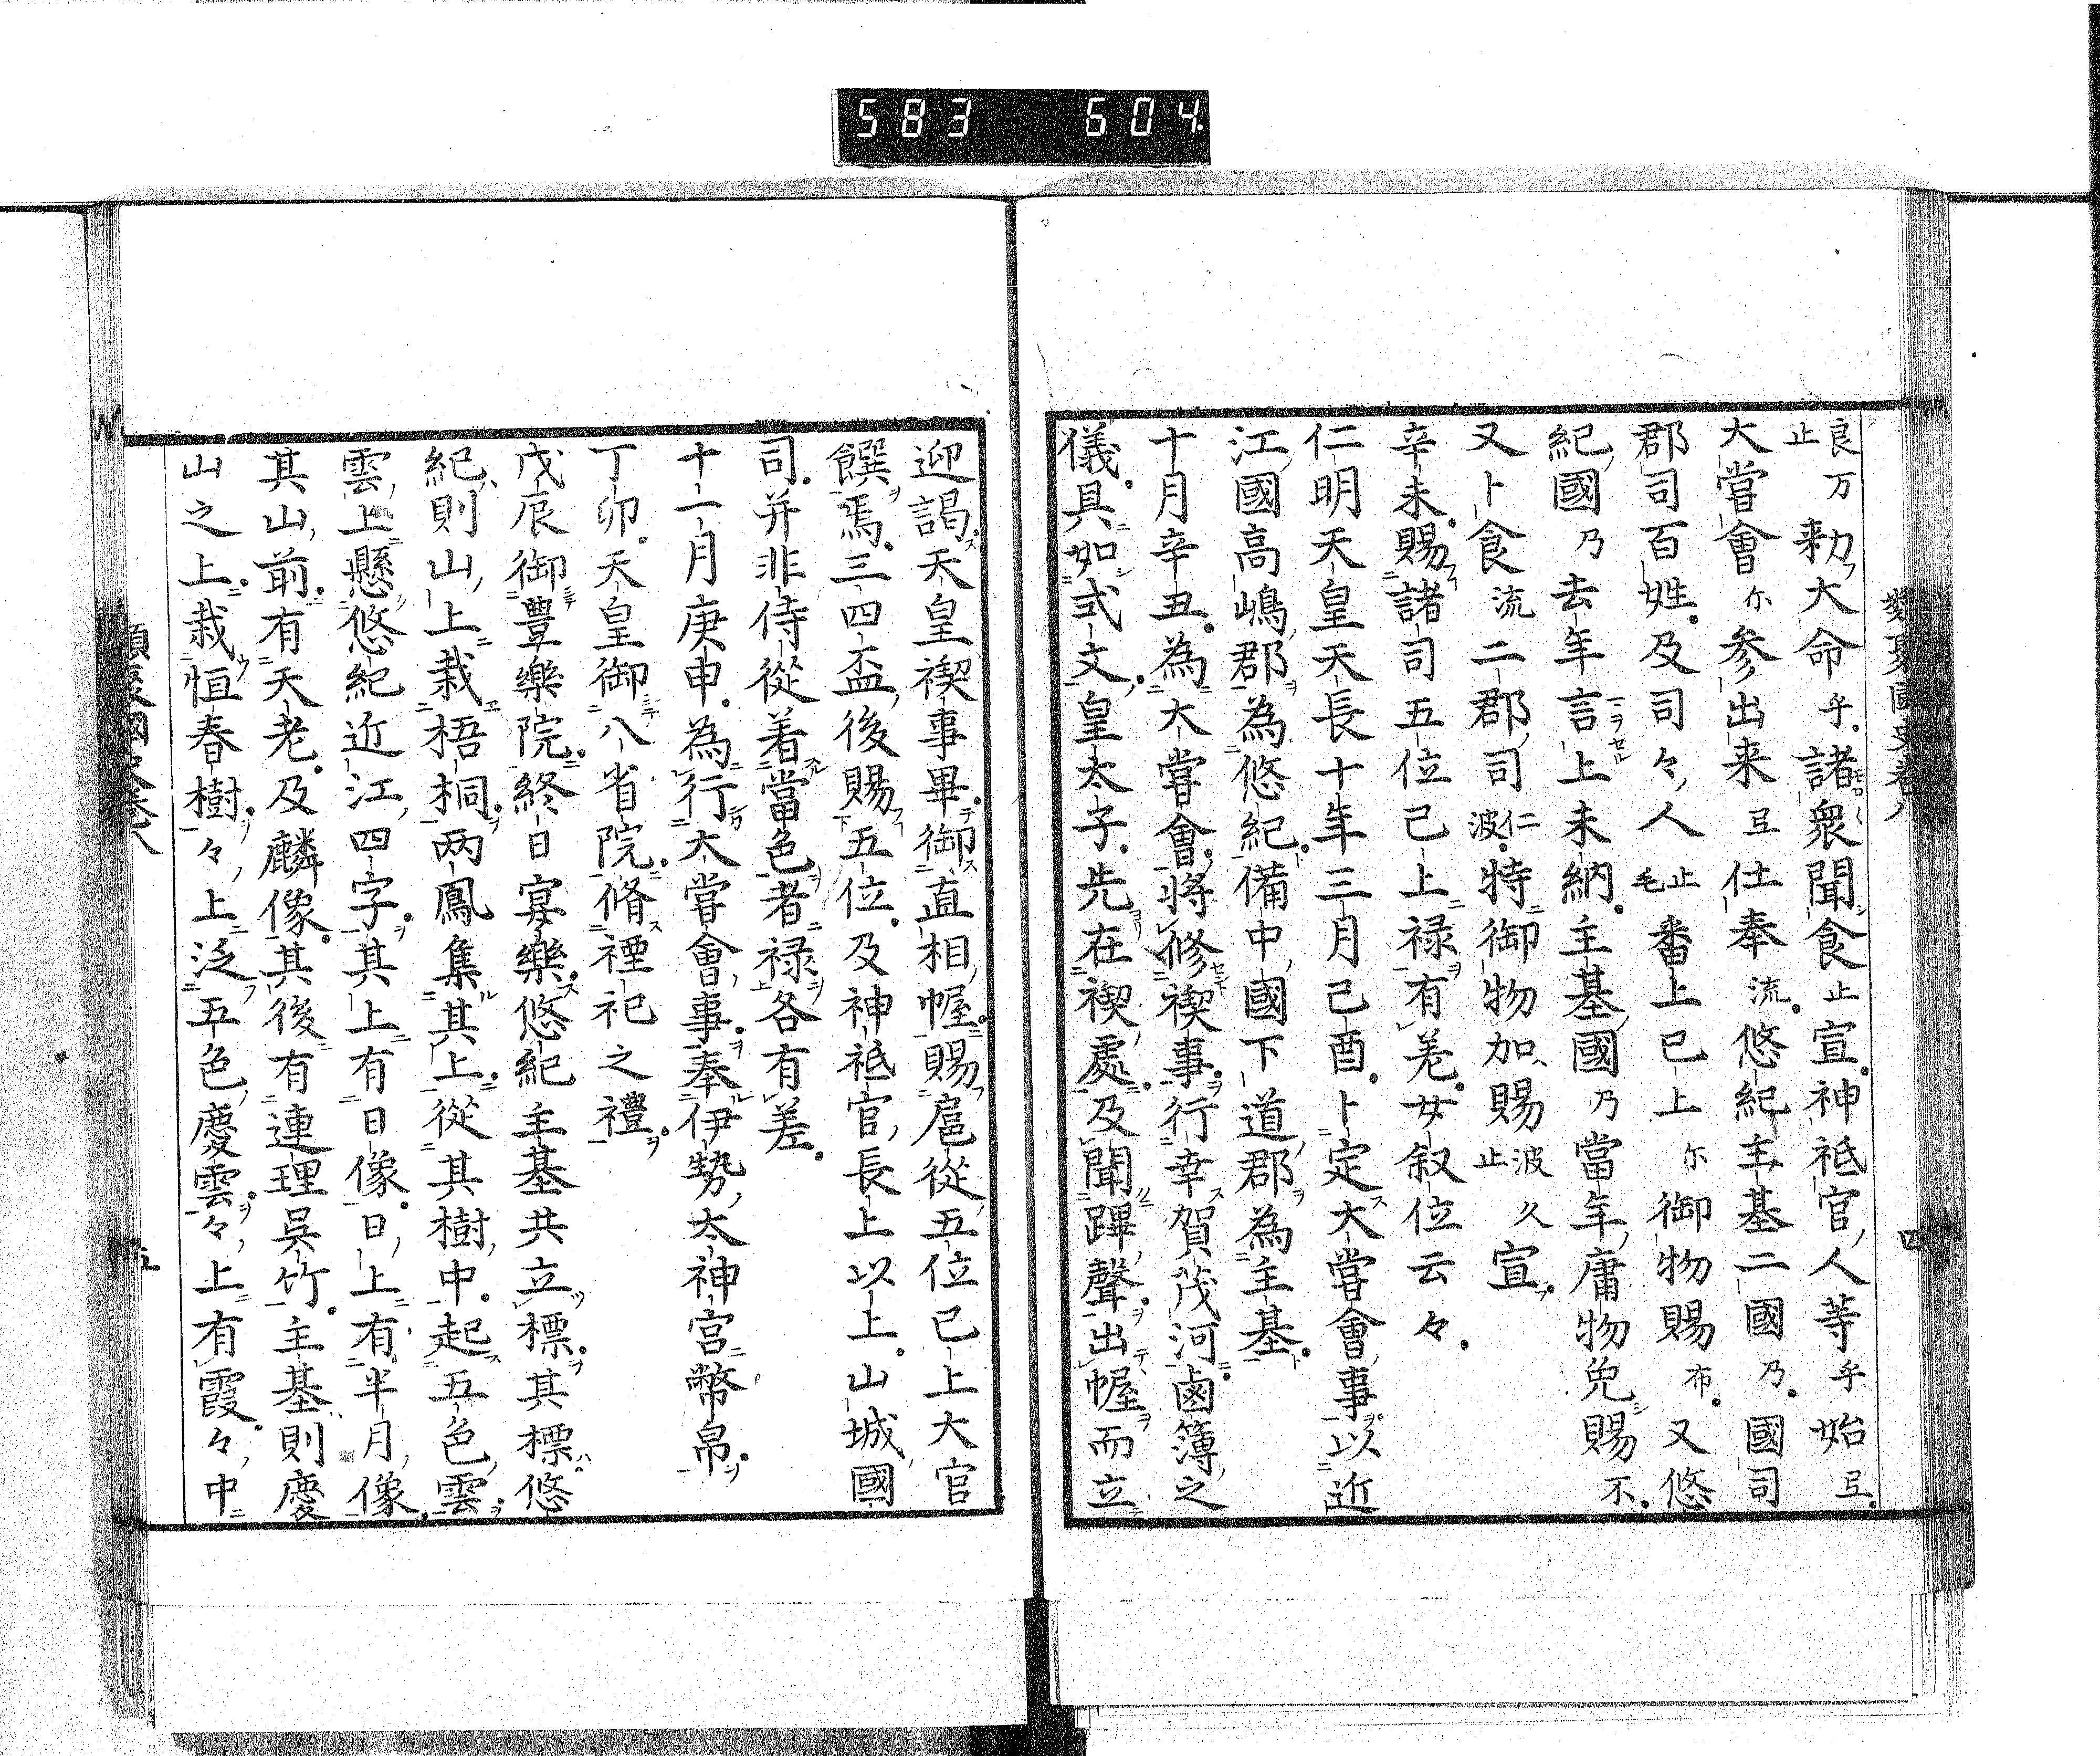 583 604.
類聚國史卷八 四
良止万勅大命乎諸衆聞食止宣神祇官人等乎始弖
大嘗會尓參出来弖仕奉流悠紀主基二國乃國司
郡司百姓及司々人止毛番上已上尓御物賜布又悠
紀國乃去年言上未納主基國乃當年庸物免賜不
又卜食流二郡司仁波特御物加賜波久止宣
辛未賜諸司五位已上禄有差女叙位云々
仁明天皇天長十年三月己酉卜定大嘗會事以近
江國高嶋郡為悠紀備中國下道郡為主基
十月辛丑為大嘗會将修禊事行幸賀茂河鹵簿之
儀具如式文皇太子先在禊處及聞蹕聲出幄而立
迎謁天皇禊事畢御直相幄賜扈從五位已上大官
饌焉三四盃後賜五位及神祇官長上以上山城國
司并非侍從着當色者禄各有差
十一月庚申為行大嘗會事奉伊勢太神宮幣帛
丁卯天皇御八省院脩禋祀之禮
戊辰御豊樂院終日宴樂悠紀主基共立標其標悠
紀則山上栽梧桐两鳳集其上從其樹中起五色雲
雲上懸悠紀近江四字其上有日像日上有半月像
其山前有天老及麟像其後有連理呉竹主基則慶
山之上栽恒春樹々上泛五色慶雲々上有霞々中
類聚國史卷八 五